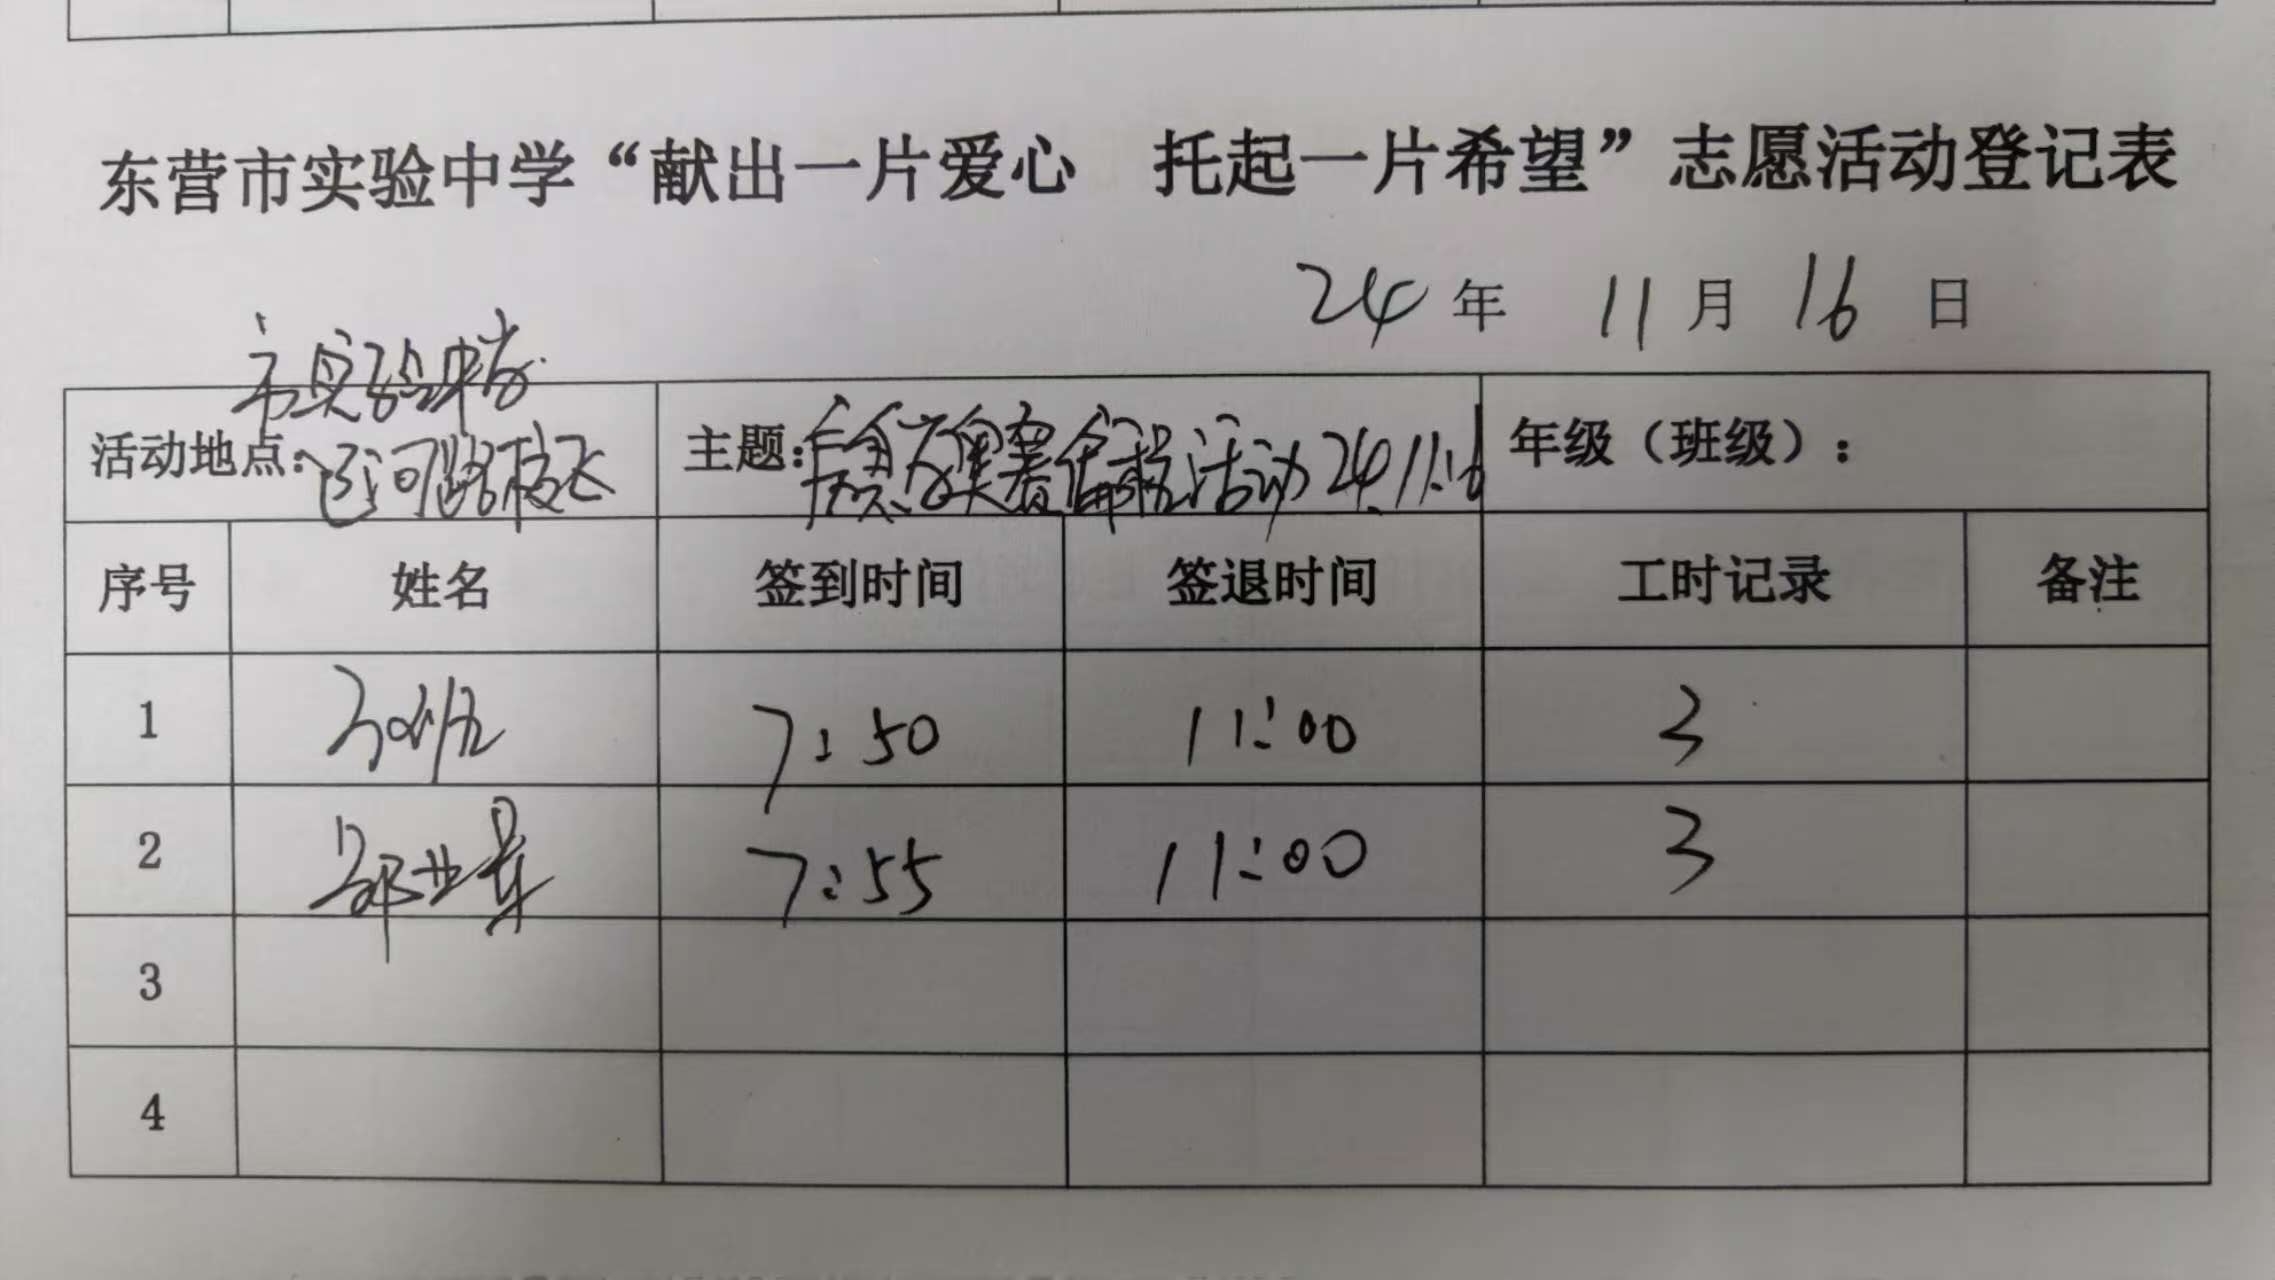 东营市实验中学“献出一片爱心 托起一片希望”志愿活动登记表
24年 11月 16日
市实验中学
活动地点: 河路校区
主题: 信息奥赛 活动24.11.16
年级（班级）:
序号 姓名 签到时间 签退时间 工时记录 备注
1 7:50 11:00 3
2 7:55 11:00 3
3
4